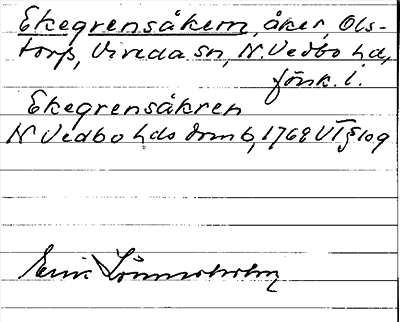 Ekegrensåkern, åker, Ols-
torp, Vireda sn, N. Vedbo hd,
Jönk. l.
Ekegrensåkren
N Vedbo hds domb, 1768 VT § 109
Erik Lönnerholm